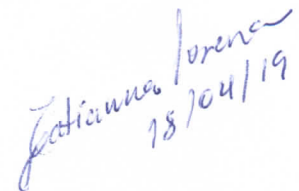 Tatianna Lorena
18/04/19